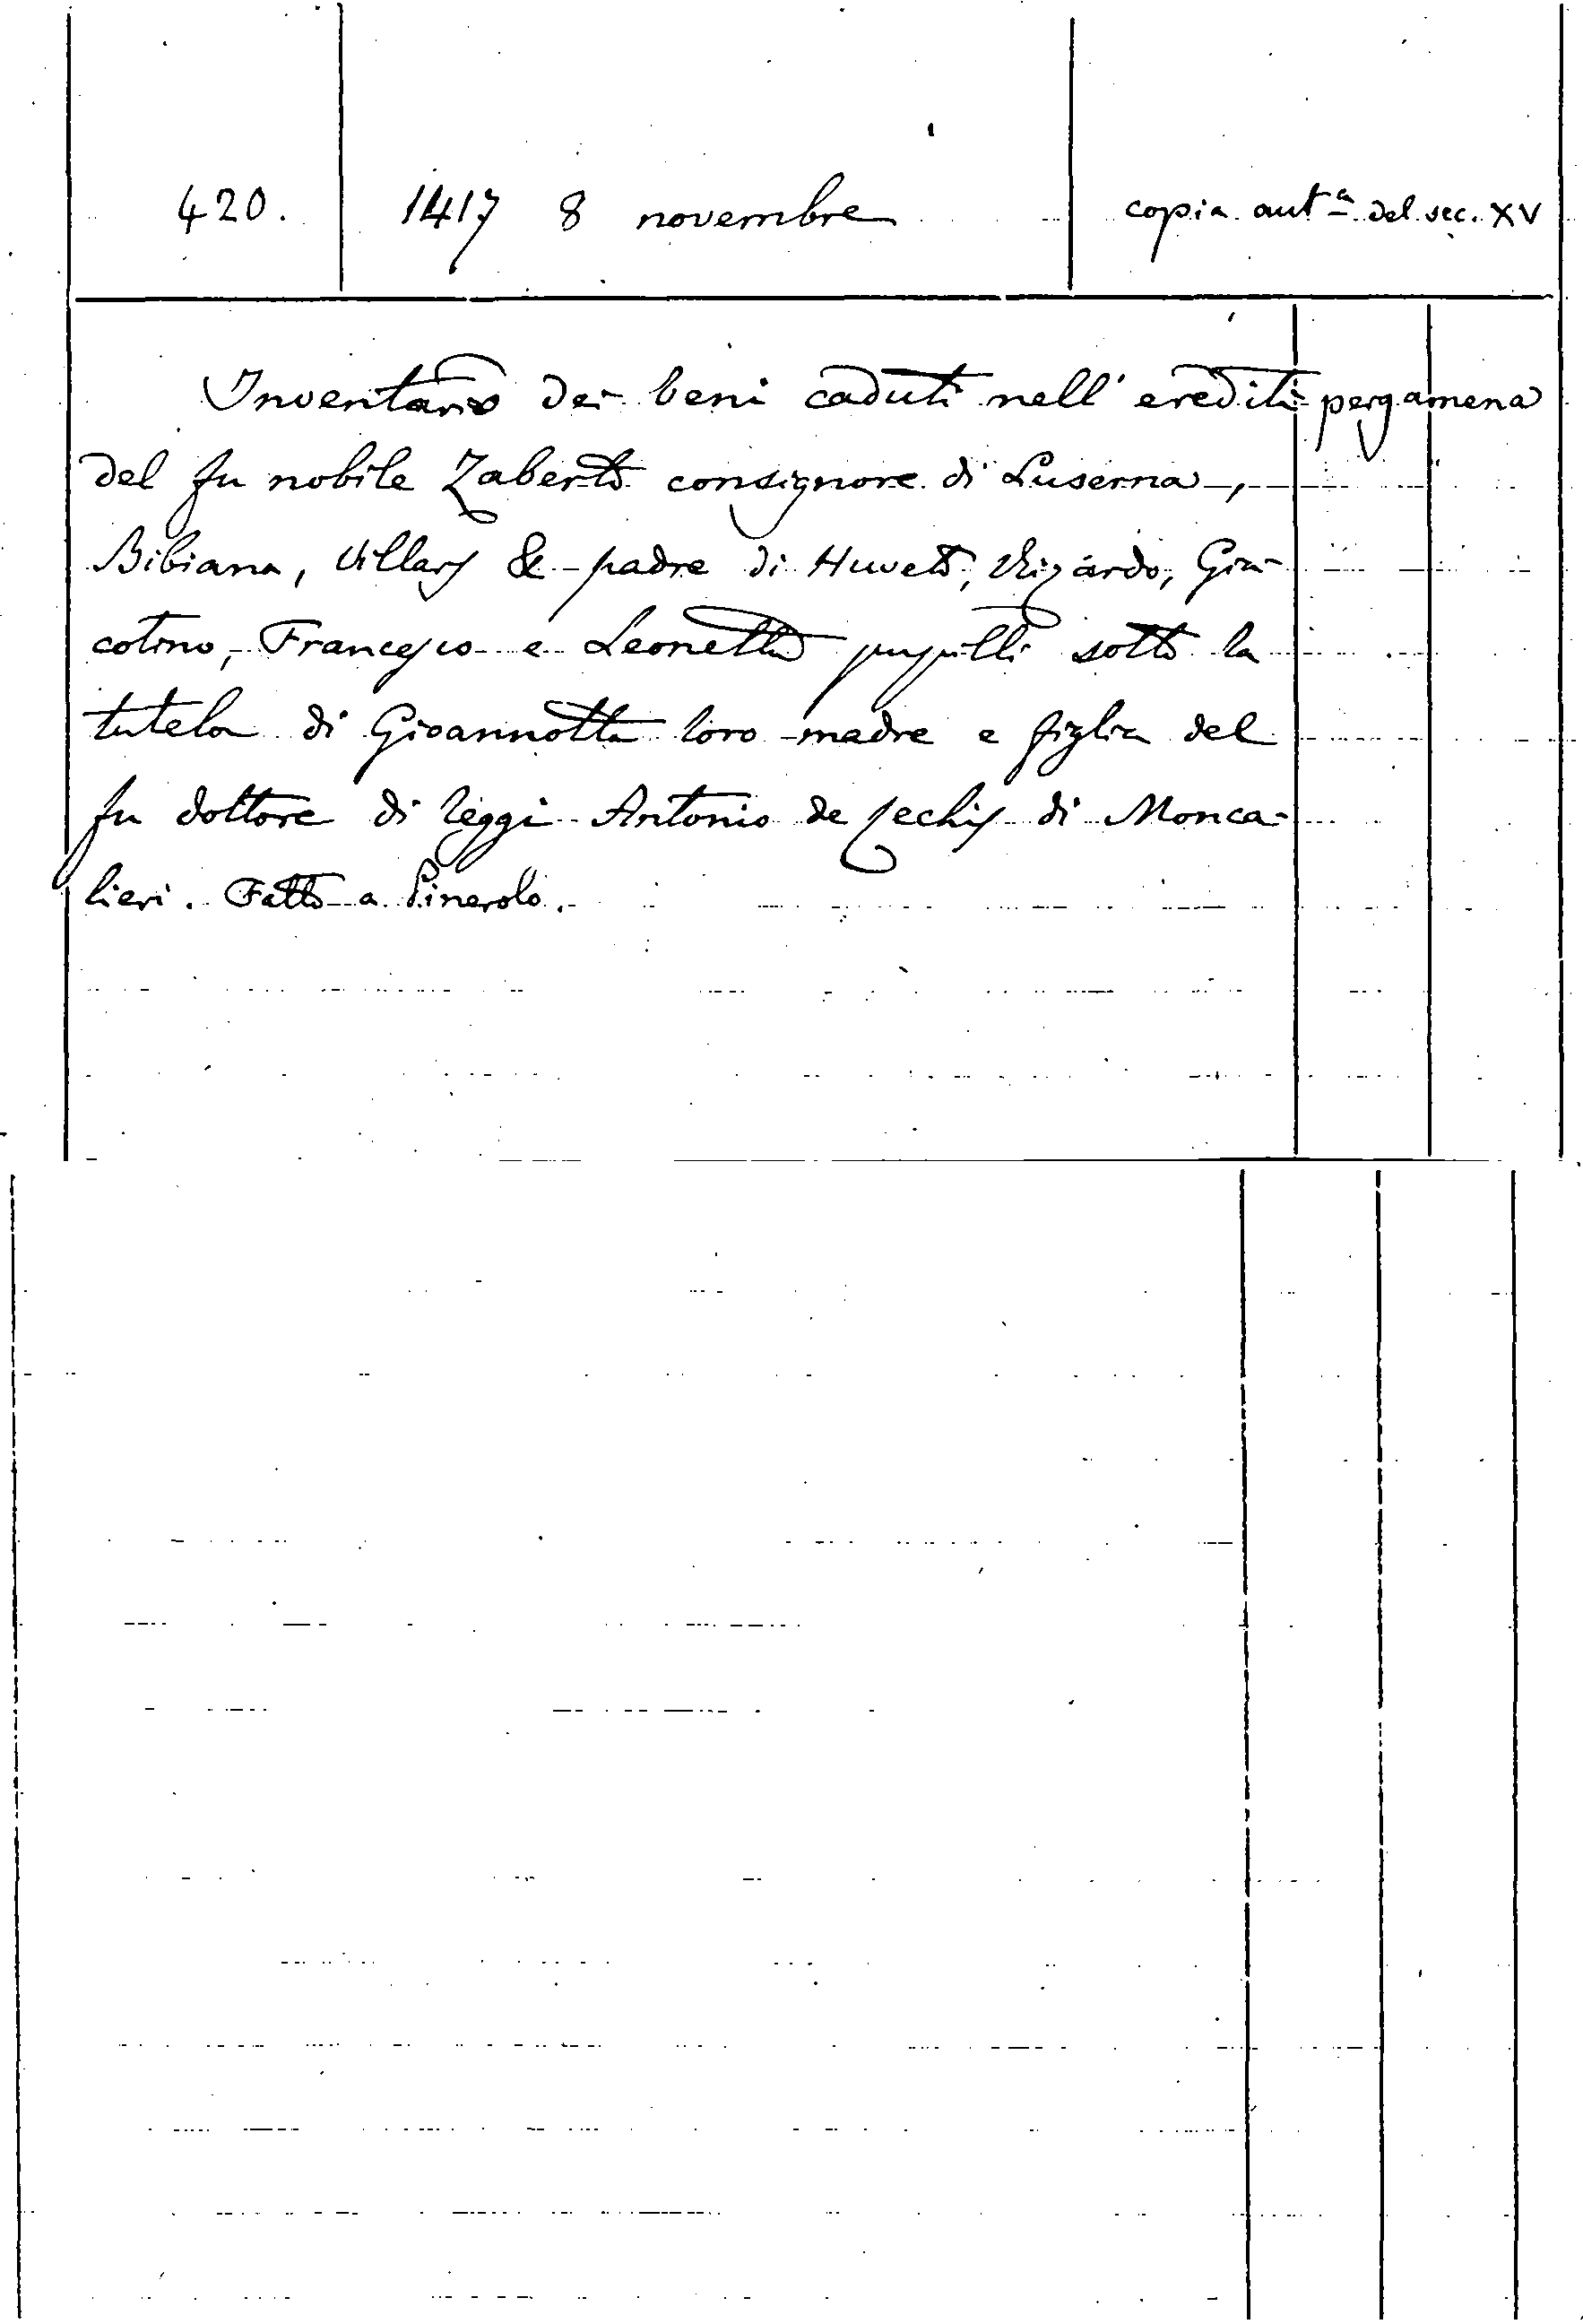 420. 1417 8 novembre copia aut.ª del sec. XV
Inventario dei beni caduti nell'eredità pergamena
del fu nobile Zaberto consignore di Luserna,
Bibiana, Villars & padre di Huveto, Gia-
cotino, Francesco e Leonetto pupilli sotto la
tutela di Gioannotta loro madre e figlia del
fu dottore di leggi Antonio de di Monca-
lieri. Fatto a Pinerolo.